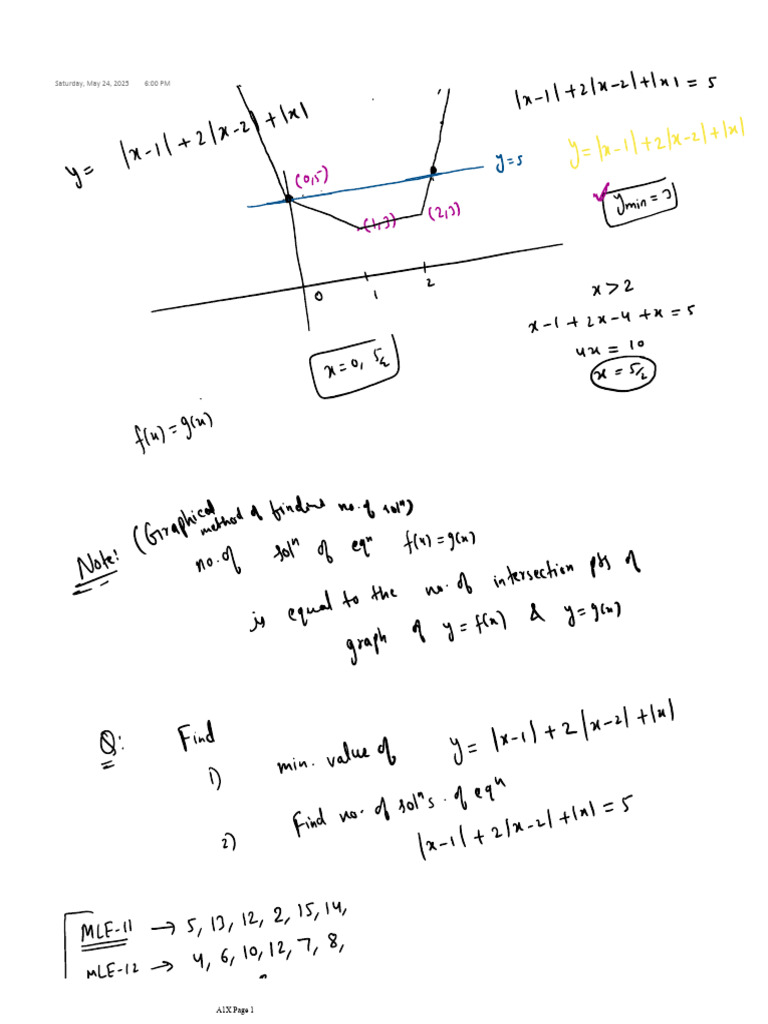 Saturday, May 24, 2025 6:00 PM
y = |x-1| + 2|x-2| + |x|
|x-1| + 2|x-2| + |x| = 5
y = |x-1| + 2|x-2| + |x|
y=5
(0,5)
(1,3)
(2,3)
✓ y min = 3
0 1 2
x > 2
x-1 + 2x-4 + x = 5
4x = 10
x = 5/2
x = 0, 5/2
f(x) = g(x)
Note: (Graphical method of finding no. of solⁿ)
no. of solⁿ of eqⁿ f(x) = g(x)
is equal to the no. of intersection pts of
graph of y = f(x) & y = g(x)
Q: Find
1) min. value of y = |x-1| + 2|x-2| + |x|
2) Find no. of solⁿs. of eqⁿ
|x-1| + 2|x-2| + |x| = 5
MLE-11 → 5, 13, 12, 2, 15, 14,
MLE-12 → 4, 6, 10, 12, 7, 8,
A1X Page 1